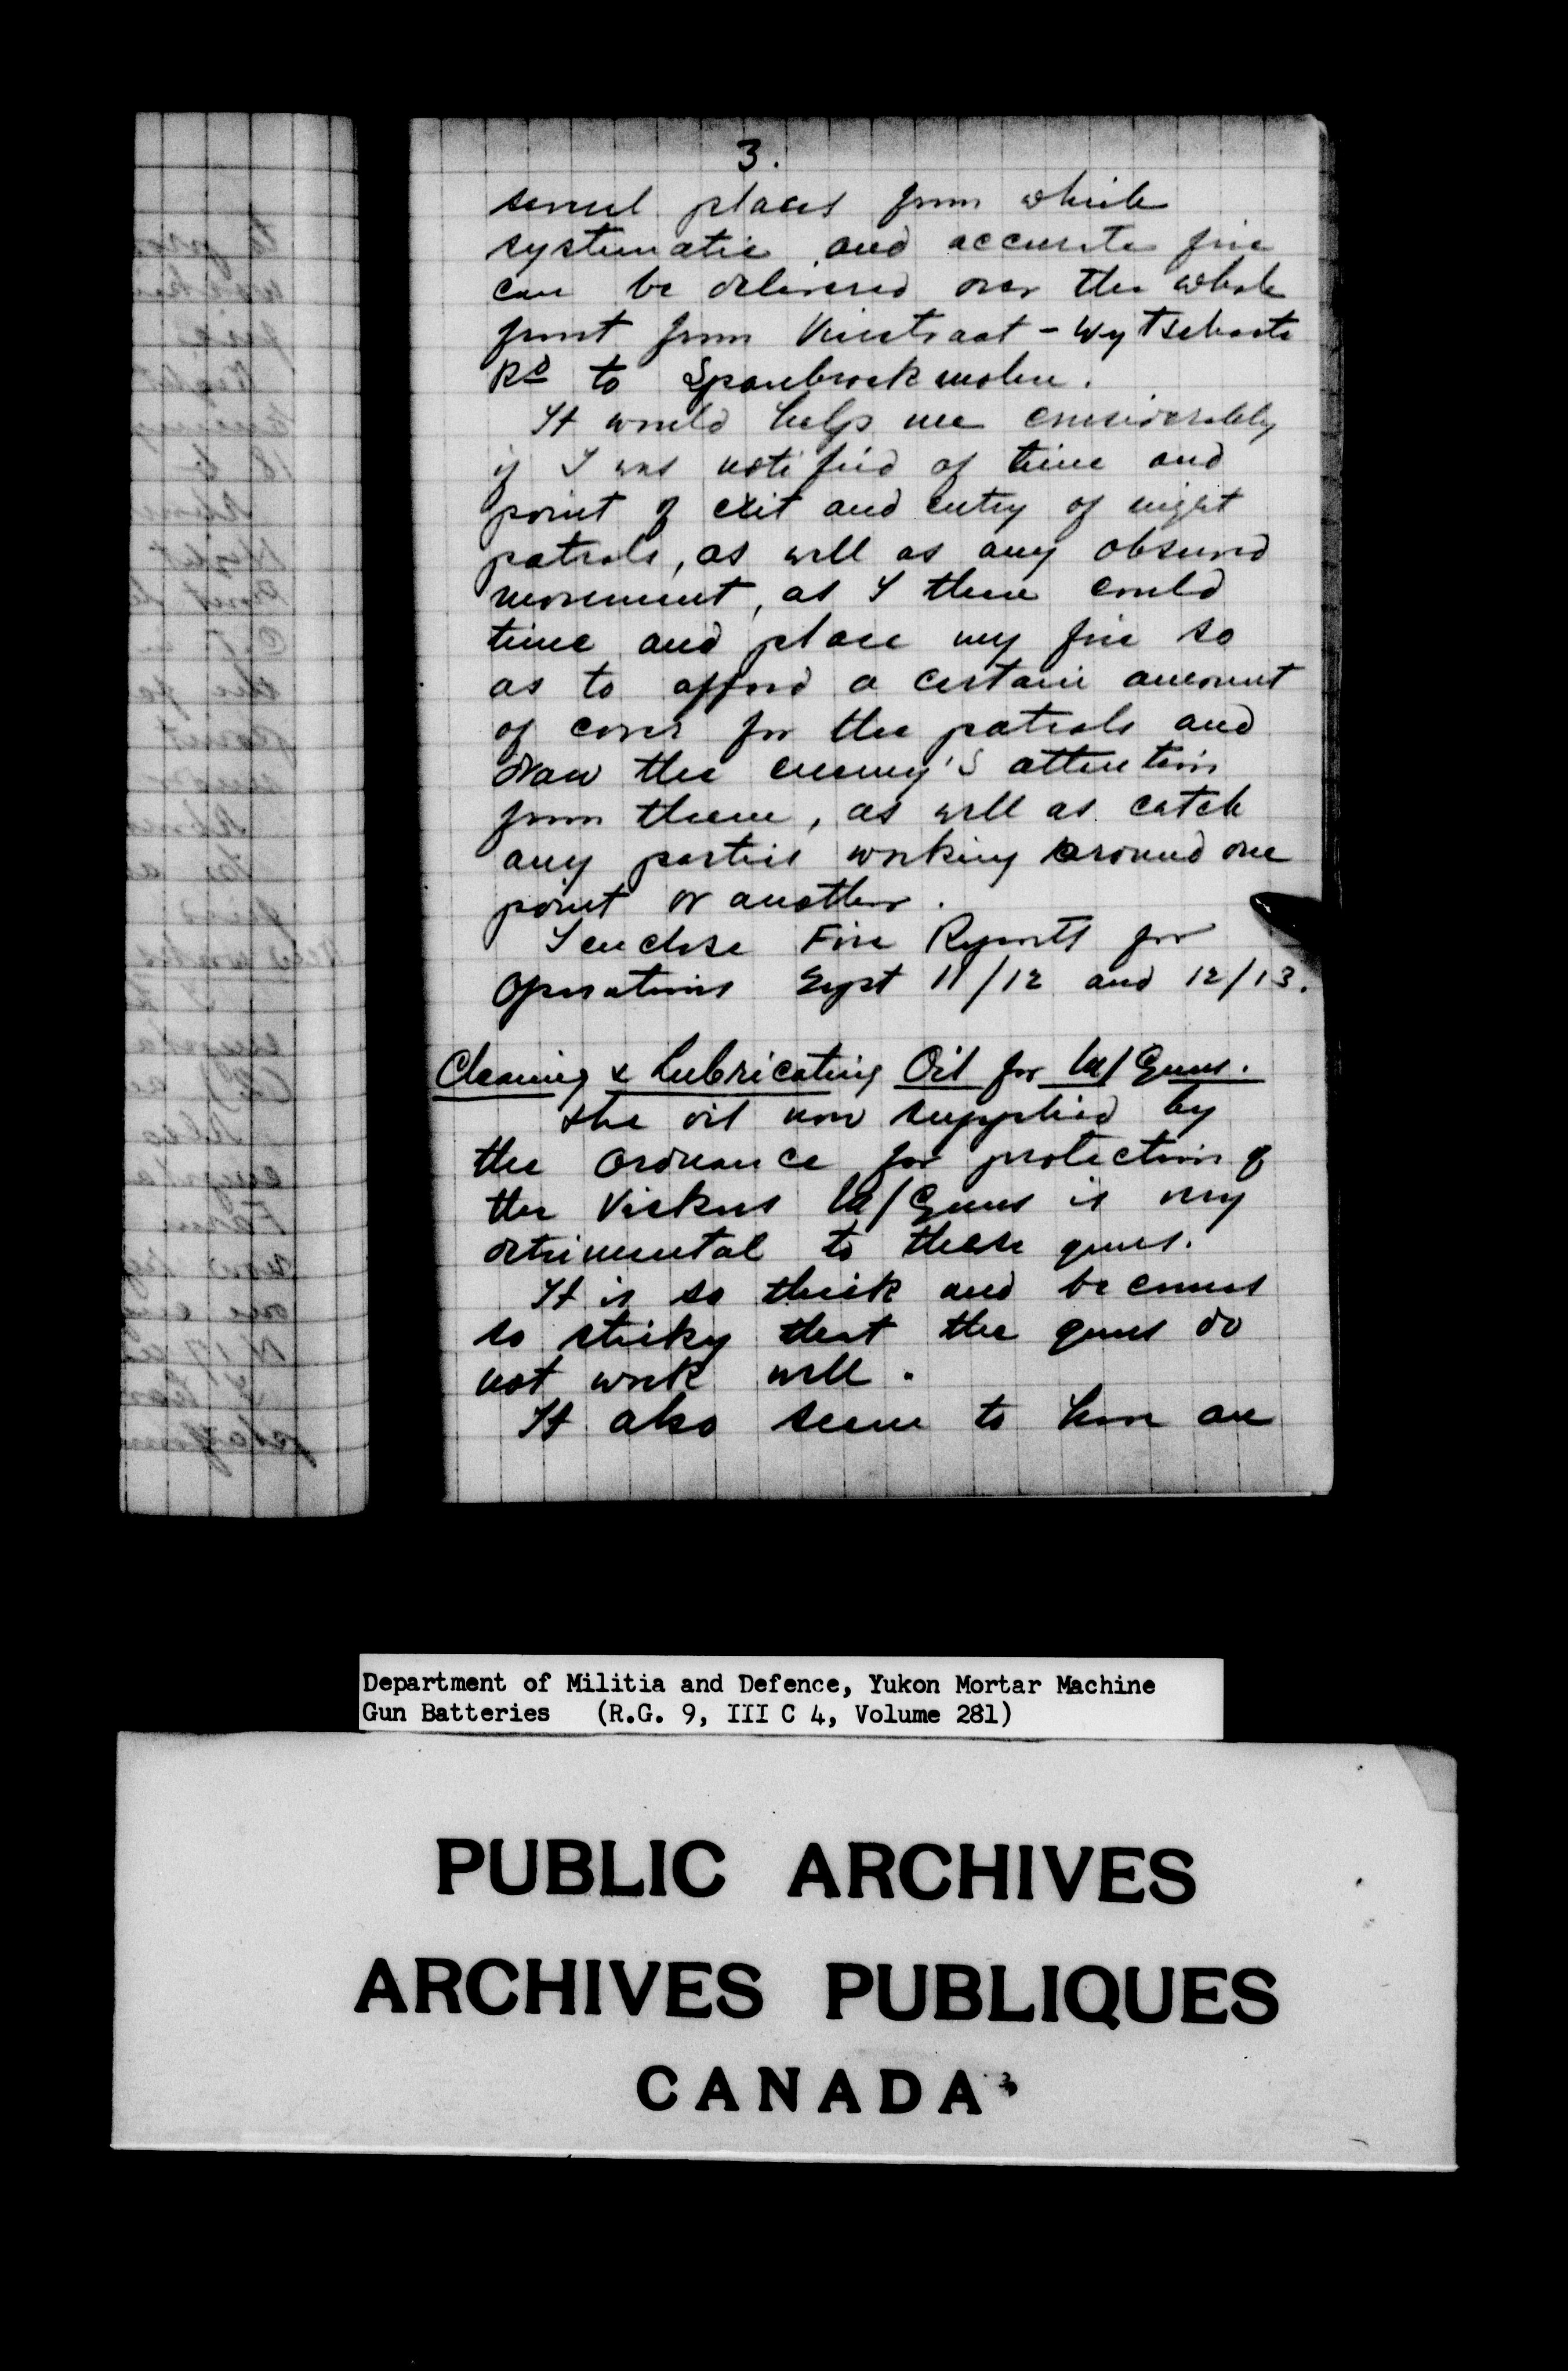 3.
several places from which
systematic and accurate fire
can be delivered over the whole
front from Vierstraat - Wytschaete
Rd to Spanbroekmolen.
It would help me considerably
if I was notified of time and
point of exit and entry of night
patrols, as well as any observed
movement, as I then could
time and place my fire so
as to afford a certain amount
of cover for the patrols and
draw the enemy's attention
from them, as well as catch
any parties working around one
point or another.
I enclose Fire Reports for
Operations Sept 11/12 and 12/13.
Cleaning & Lubricating Oil for M/Guns.
The oil now supplied by
the Ordnance for protection of
the Vickers M/Guns is very
detrimental to these guns.
It is so thick and becomes
so sticky that the guns do
not work well.
It also seems to have an
Department of Militia and Defence, Yukon Mortar Machine
Gun Batteries (R.G. 9, III C 4, Volume 281)
PUBLIC ARCHIVES
ARCHIVES PUBLIQUES
CANADA